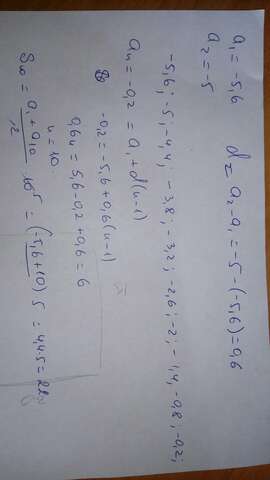 a₁ = -5,6 d = a₂ - a₁ = -5 - (-5,6) = 0,6
a₂ = -5
-5,6; -5; -4,4; -3,8; -3,2; -2,6; -2; -1,4, -0,8; -0,2;
aₙ = -0,2 = a₁ + d(n-1)
-0,2 = -5,6 + 0,6(n-1)
0,6n = 5,6 - 0,2 + 0,6 = 6
n = 10
S₁₀ = (a₁ + a₁₀)/2 · 10 ⁵ = (-5,6 + 10) 5 = 4,4·5 = 22